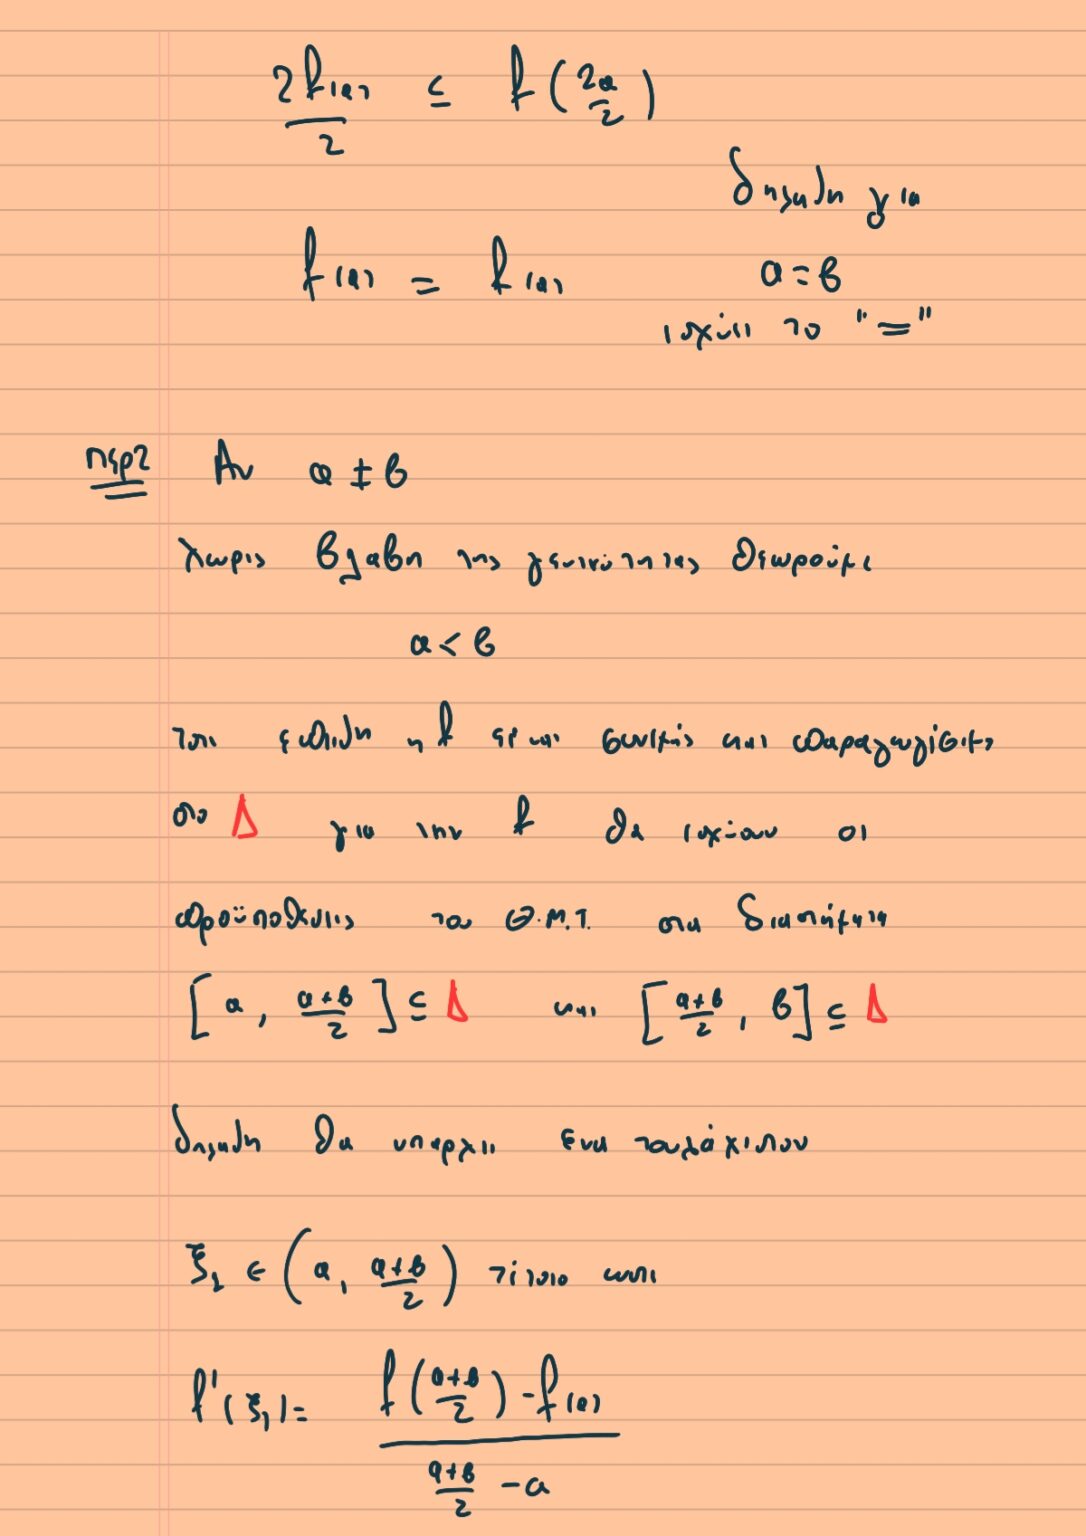 2f(α)/2 ≤ f(2α/2)
δηλαδη για
f(α) = f(α) α=β
ισχύει το "="
περ2 Αν α ≠ β
Χωρις βλαβη της γενικότητας θεωρούμε
α<β
τοτε επειδη η f ειναι συνεχής και παραγωγίσιμη
στο Δ για την f θα ισχύουν οι
προϋποθεσεις του Θ.Μ.Τ. στα διαστήματα
[α, α+β/2] ⊆ Δ και [α+β/2, β] ⊆ Δ
δηλαδη θα υπαρχει ενα τουλάχιστον
ξ₁ ∈ (α, α+β/2) τέτοιο ωστε
f'(ξ₁) = (f(α+β/2) - f(α)) / (α+β/2 - α)